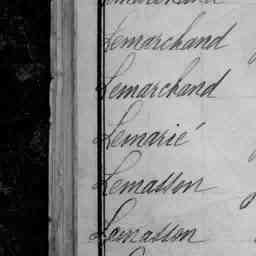 Lemarchand
Lemarchand
Lemarié
Lemasson
Lemasson